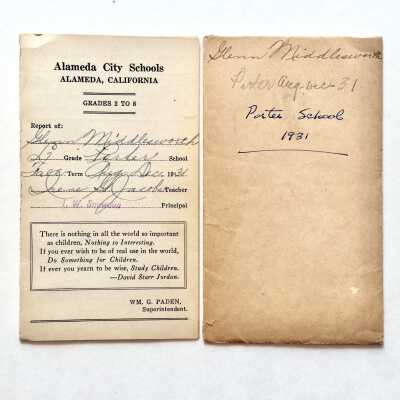 Alameda City Schools
ALAMEDA, CALIFORNIA
GRADES 2 TO 6
Report of:
Glenn Middlesworth
Grade Porter School
Fall Term Aug-Dec, 1931
Irene St. Jacobs Teacher
Principal
There is nothing in all the world so important
as children, Nothing so Interesting.
If you ever wish to be of real use in the world,
Do Something for Children.
If ever you yearn to be wise, Study Children.
—David Starr Jordan.
WM. G. PADEN,
Superintendent.
Glenn Middlesworth
Porter Aug-Dec-31
Porter School
1931